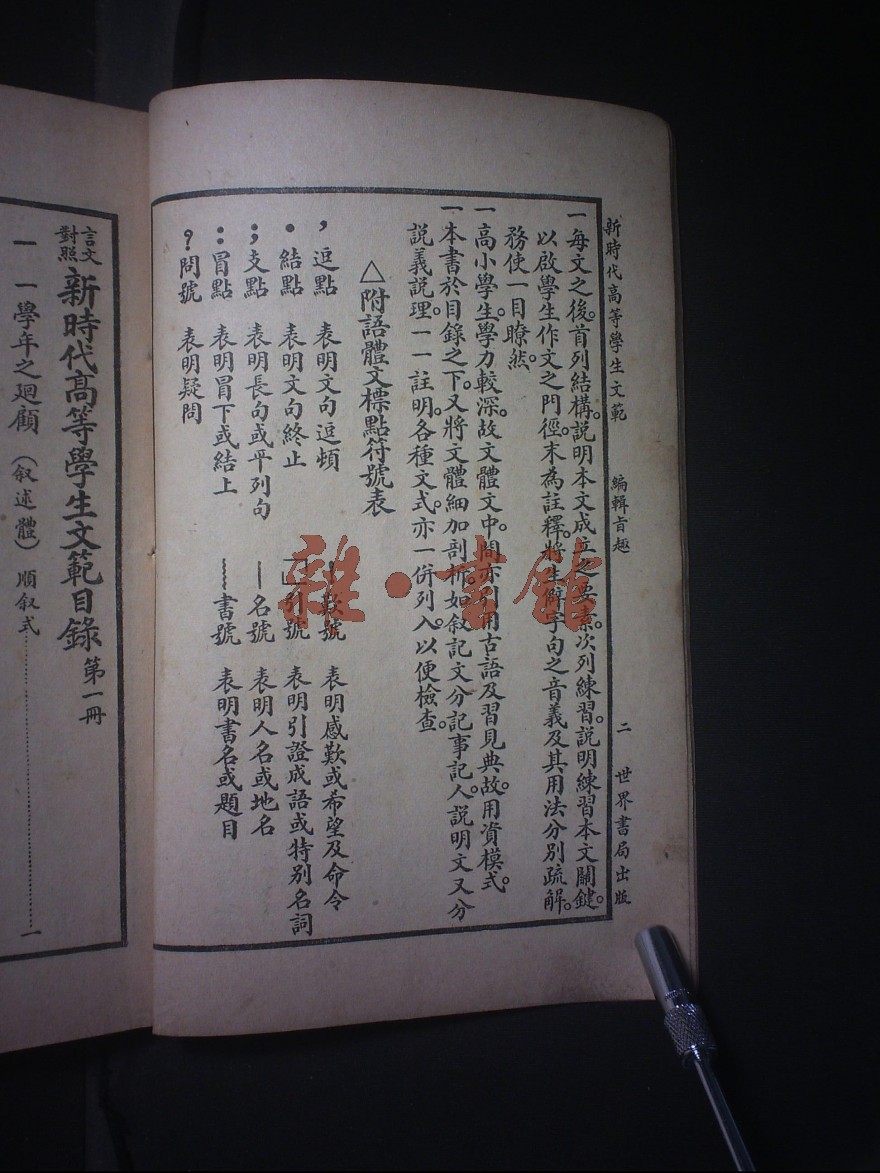 新時代高等學生文範　編輯旨趣　二　世界書局出版
一每文之後。首列結構。說明本文成立之要素。次列練習。說明練習本文關鍵。
以啟學生作文之門徑。末為註釋。將生僻字句之音義及其用法分別疏解。
務使一目瞭然。
一高小學生學力較深。故文體文中。間亦引用古語及習見典故。用資模式。
一本書於目錄之下。又將文體細加剖析。如敘記文分記事記人說明文又分
說義說理。一一註明。各種文式。亦一併列入。以便檢查。
△附語體文標點符號表
，逗點　表明文句逗頓　！歎號　表明感歎或希望及命令
．結點　表明文句終止　「」引號　表明引證成語或特別名詞
；支點　表明長句或平列句　—名號　表明人名或地名
：冒點　表明冒下或結上　﹏書號　表明書名或題目
？問號　表明疑問
言文對照　新時代高等學生文範目錄　第一冊
一　一學年之迴顧（敘述體）　順敘式……………………一
雜·書館